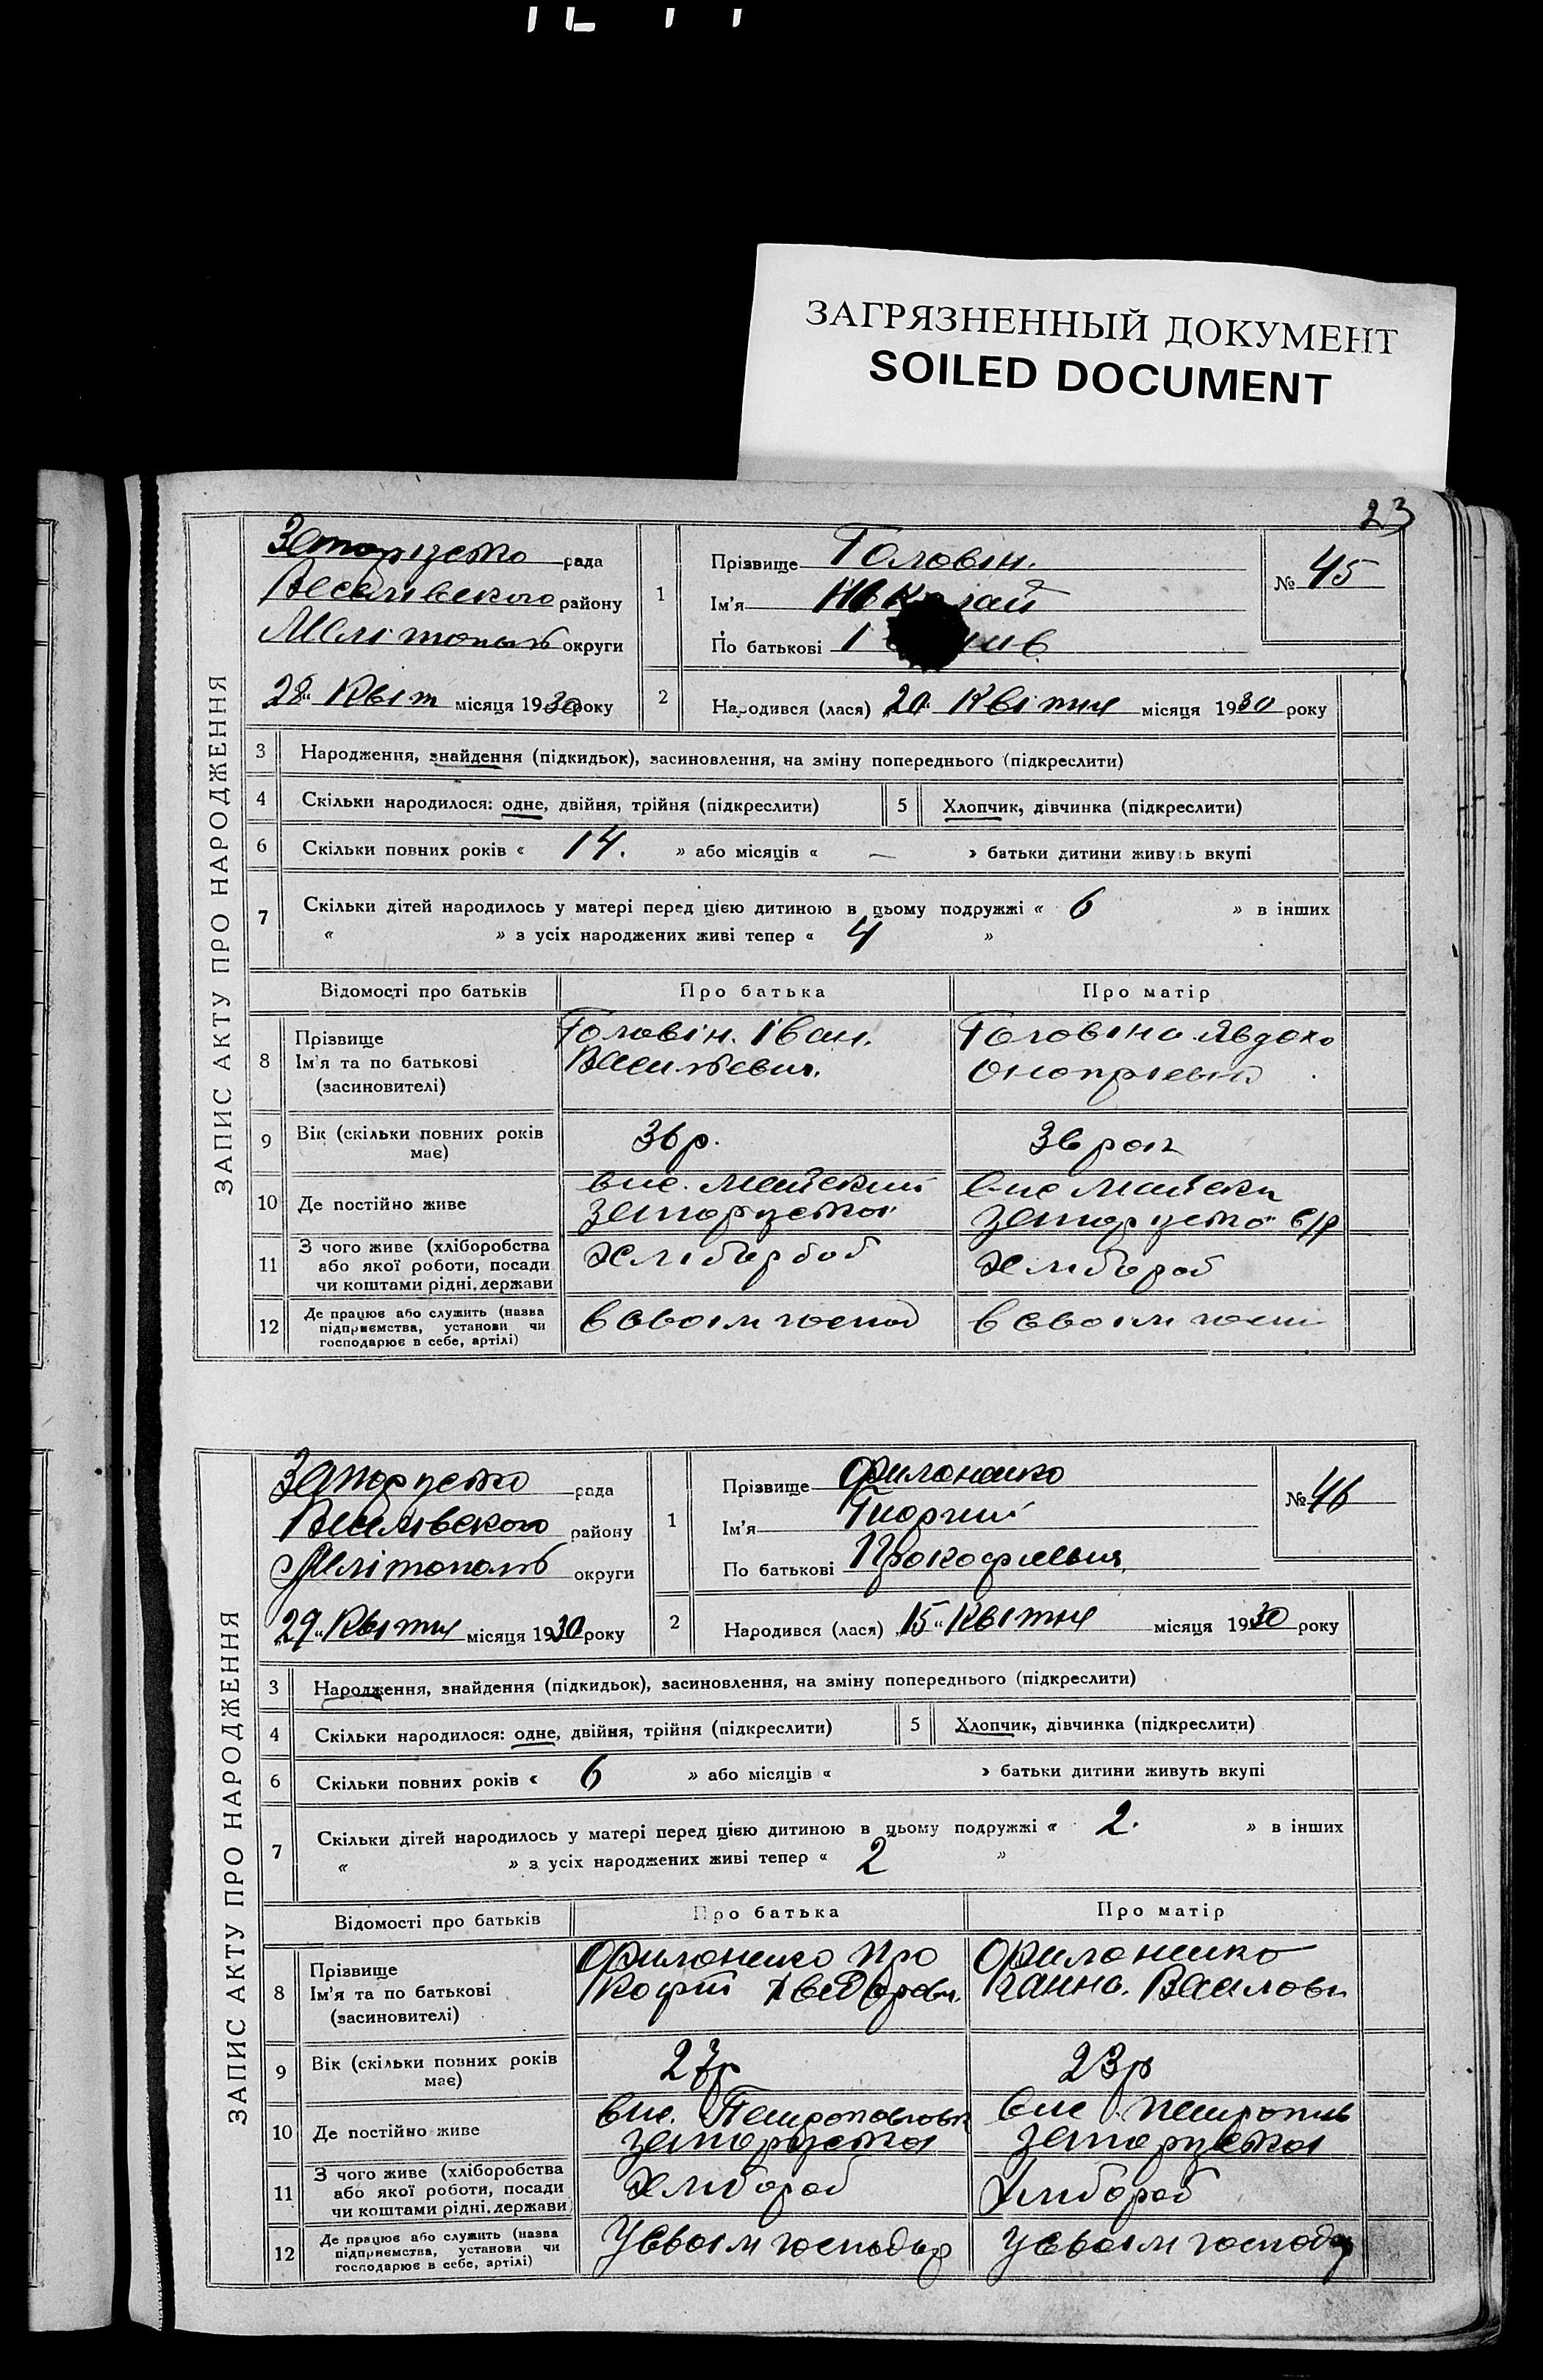 ЗАГРЯЗНЕННЫЙ ДОКУМЕНТ
SOILED DOCUMENT
23
ЗАПИС АКТУ ПРО НАРОДЖЕННЯ
рада
Веселівського району
Мелітополь округи
28 Квіт місяця 1930 року
1
Прізвище Головін.
Ім'я
По батькові
№ 45
2 Народився (лася) 20 Квітня місяця 1930 року
3 Народження, знайдення (підкидьок), засиновлення, на зміну попереднього (підкреслити)
4 Скільки народилося: одне, двійня, трійня (підкреслити) 5 Хлопчик, дівчинка (підкреслити)
6 Скільки повних років « 14. » або місяців « — » батьки дитини живуть вкупі
7 Скільки дітей народилось у матері перед цією дитиною в цьому подружжі « 6 » в інших
« » з усіх народжених живі тепер « 4 »
Відомості про батьків Про батька Про матір
8 Прізвище
Ім'я та по батькові
(засиновителі)
Головін. Іван.
Васильевич.
Головіна Явдохо
9 Вік (скільки повних років
має)
36 р. 36 рок
10 Де постійно живе
вис. Майский
вис Майски
с/р
11 З чого живе (хліборобства
або якої роботи, посади
чи коштами рідні, держави
Хлібороб
12 Де працює або служить (назва
підприємства, установи чи
господарює в себе, артілі)
в своім госпо в своім госп
ЗАПИС АКТУ ПРО НАРОДЖЕННЯ
рада
Веселівського району
Мелітополь округи
29 Квітня місяця 1930 року
1
Прізвище Филоненко
Ім'я Гиоргий
По батькові Прокофиевич
№ 46
2 Народився (лася) 15 Квітня місяця 1930 року
3 Народження, знайдення (підкидьок), засиновлення, на зміну попереднього (підкреслити)
4 Скільки народилося: одне, двійня, трійня (підкреслити) 5 Хлопчик, дівчинка (підкреслити)
6 Скільки повних років « 6 » або місяців « » батьки дитини живуть вкупі
7 Скільки дітей народилось у матері перед цією дитиною в цьому подружжі « 2. » в інших
« » з усіх народжених живі тепер « 2 »
Відомості про батьків Про батька Про матір
8 Прізвище
Ім'я та по батькові
(засиновителі)
Филоненко Про
Филоненко
Ганна.
9 Вік (скільки повних років
має)
27р 23р
10 Де постійно живе
вис.
вис
11 З чого живе (хліборобства
або якої роботи, посади
чи коштами рідні, держави
Хлібороб Хлибороб
12 Де працює або служить (назва
підприємства, установи чи
господарює в себе, артілі)
У своім господар у своім господар